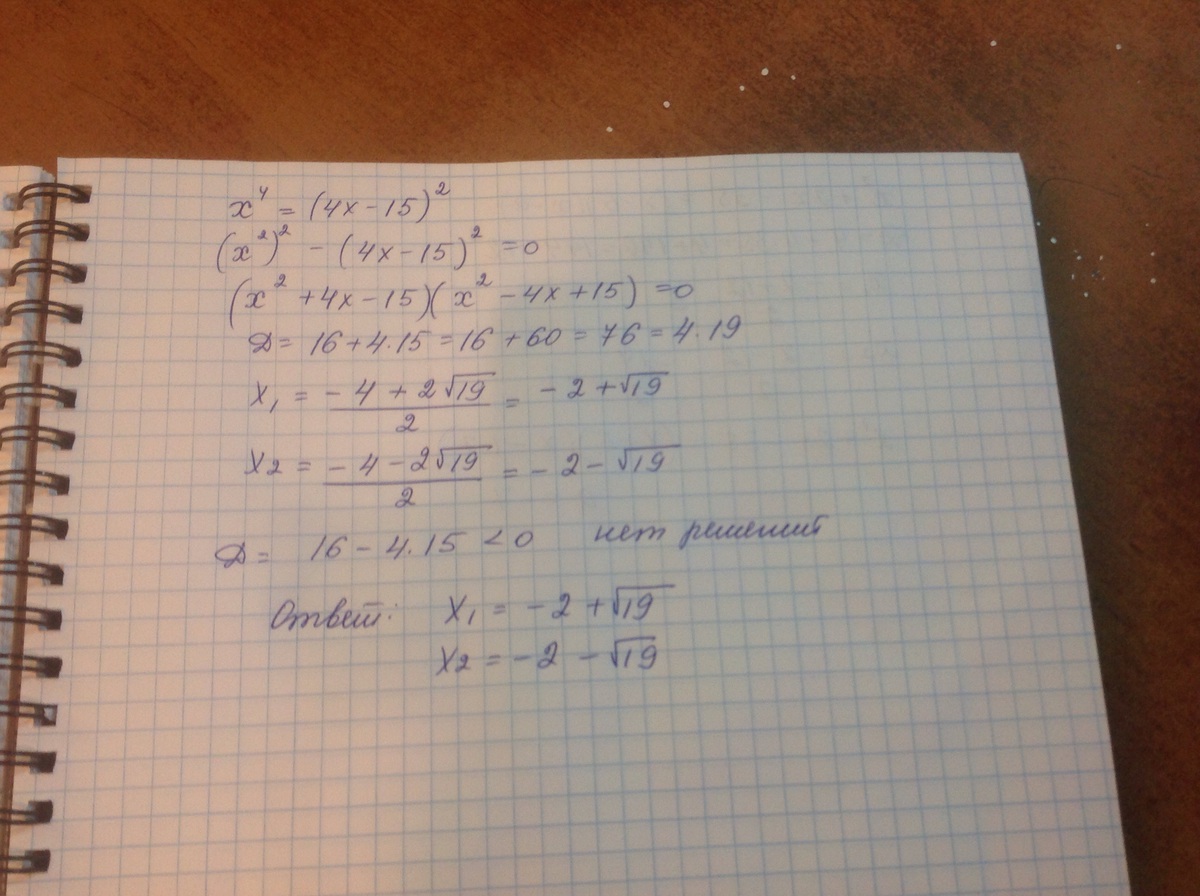 x⁴ = (4x-15)²
(x²)² - (4x-15)² = 0
(x² + 4x - 15)(x² - 4x + 15) = 0
Д = 16 + 4.15 = 16 + 60 = 76 = 4.19
X₁ = (-4 + 2√19)/2 = -2 + √19
X₂ = (-4 - 2√19)/2 = -2 - √19
Д = 16 - 4.15 < 0 нет решений
Ответ: X₁ = -2 + √19
X₂ = -2 - √19